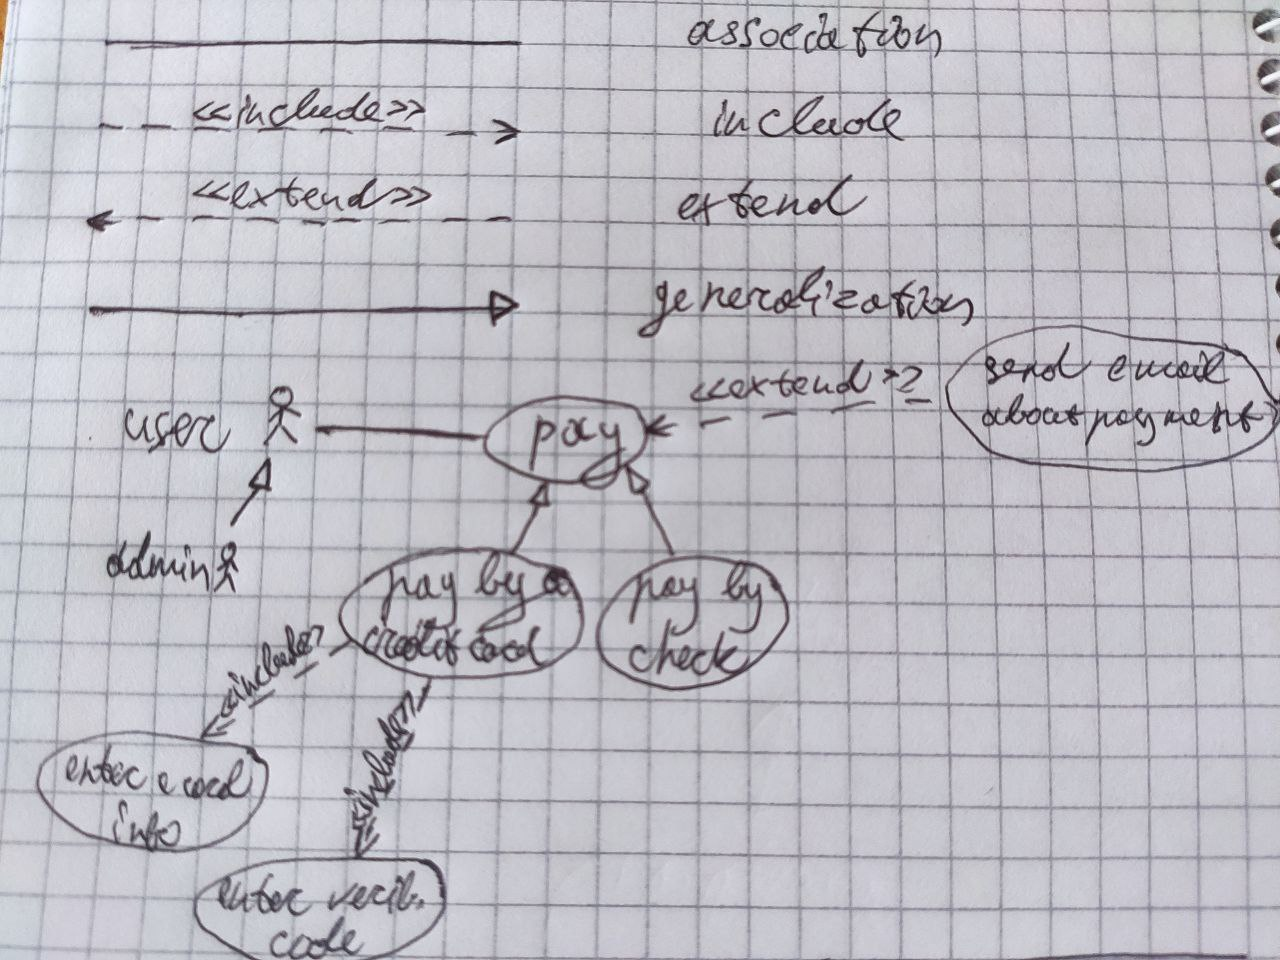 association
<<include>>
include
<<extend>>
extend
generalization
<<extend>>
send email
about payment
user
pay
admin
pay by a
credit card
pay by
check
<<include>>
<<include>>
enter card
info
enter verif.
code